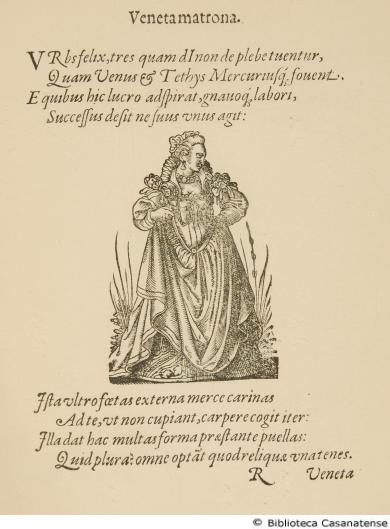 Veneta matrona.
VRbs felix, tres quam dI non de plebe tuentur,
Quam Venus & Tethys Mercuriusq́, fovent.
E quibus hic lucro adspirat, gnavoq́, labori,
Successus desit ne suus vnus agit:
Ista vltro fœtas externa merce carinas
Ad te, vt non cupiant, carpere cogit iter:
Illa dat hac multas forma præstante puellas:
Quid plura? omne optãt quod reliquæ vna tenes.
R Veneta
© Biblioteca Casanatense